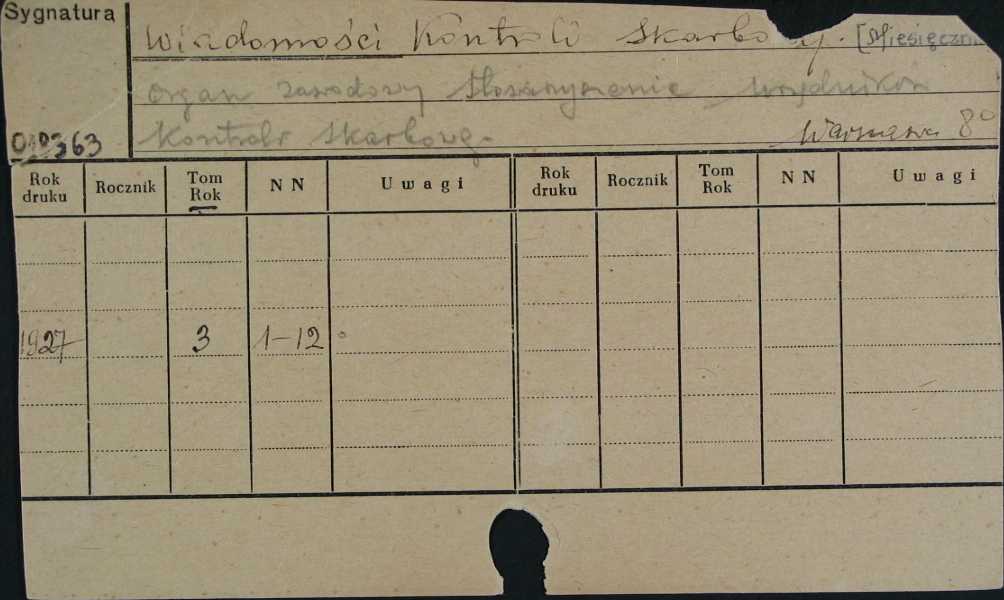 Sygnatura
Wiadomości Kontroli Skarbowej. [Miesięcznik
Organ zawodowy Stowarzyszenia Urzędników
Kontroli Skarbowej.
Warszawa 8°
010363
Rok druku Rocznik Tom Rok NN Uwagi Rok druku Rocznik Tom Rok NN Uwagi
1927 3 1-12